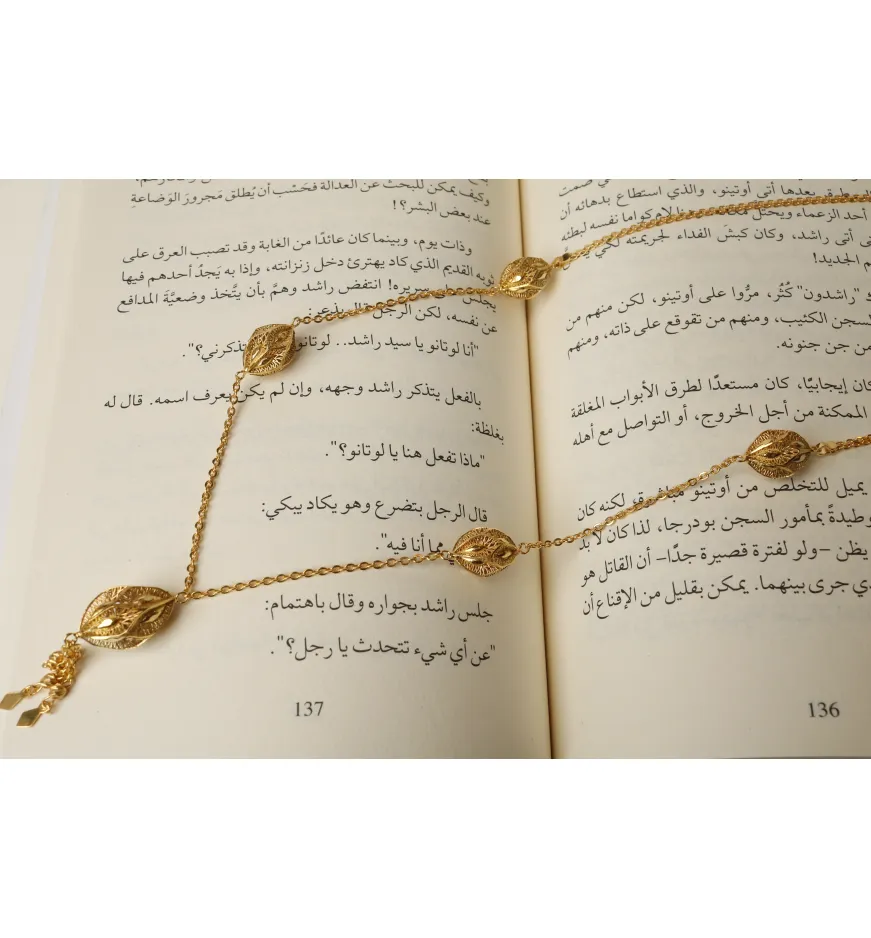 صمت
بعدها أتى أوتينو، والذي استطاع بدهائه أن
أحد الزعماء ويحتل
نفسه لبطئه
أتى راشد، وكان كبشَ الفداء لجريمته لكي
م الجديد!
"راشدون" كُثُر، مرُّوا على أوتينو، لكن منهم من
لسجن الكئيب، ومنهم من تقوقع على ذاته، ومنهم
من جن جنونه.
كان إيجابيًا، كان مستعدًا لطرق الأبواب المغلقة
الممكنة من أجل الخروج، أو التواصل مع أهله
يميل للتخلص من أوتينو مباشرة، لكنه كان
وطيدةً بمأمور السجن بودرجا، لذا كان لا بد
يظن –ولو لفترة قصيرة جدًا– أن القاتل هو
ي جرى بينهما. يمكن بقليل من الإقناع أن
136
وكيف يمكن للبحث عن العدالة فحَسْب أن يُطلق مَجرورَ الوَضاعةِ
عند بعض البشر؟!
وذات يوم، وبينما كان عائدًا من الغابة وقد تصبب العرق على
ثوبه القديم الذي كاد يهترئ دخل زنزانته، وإذا به يَجِدُ أحدهم فيها
يجلس على سريره! انتفض راشد وهمَّ بأن يتَّخذ وضعيَّة المدافع
عن نفسه، لكن الرجل قال
"أنا لوتانو يا سيد راشد.. لوتانو
تذكرني؟".
بالفعل يتذكر راشد وجهه، وإن لم يكن يعرف اسمه. قال له
بغلظة:
"ماذا تفعل هنا يا لوتانو؟".
قال الرجل بتضرع وهو يكاد يبكي:
مما أنا فيه".
جلس راشد بجواره وقال باهتمام:
"عن أي شيء تتحدث يا رجل؟".
137